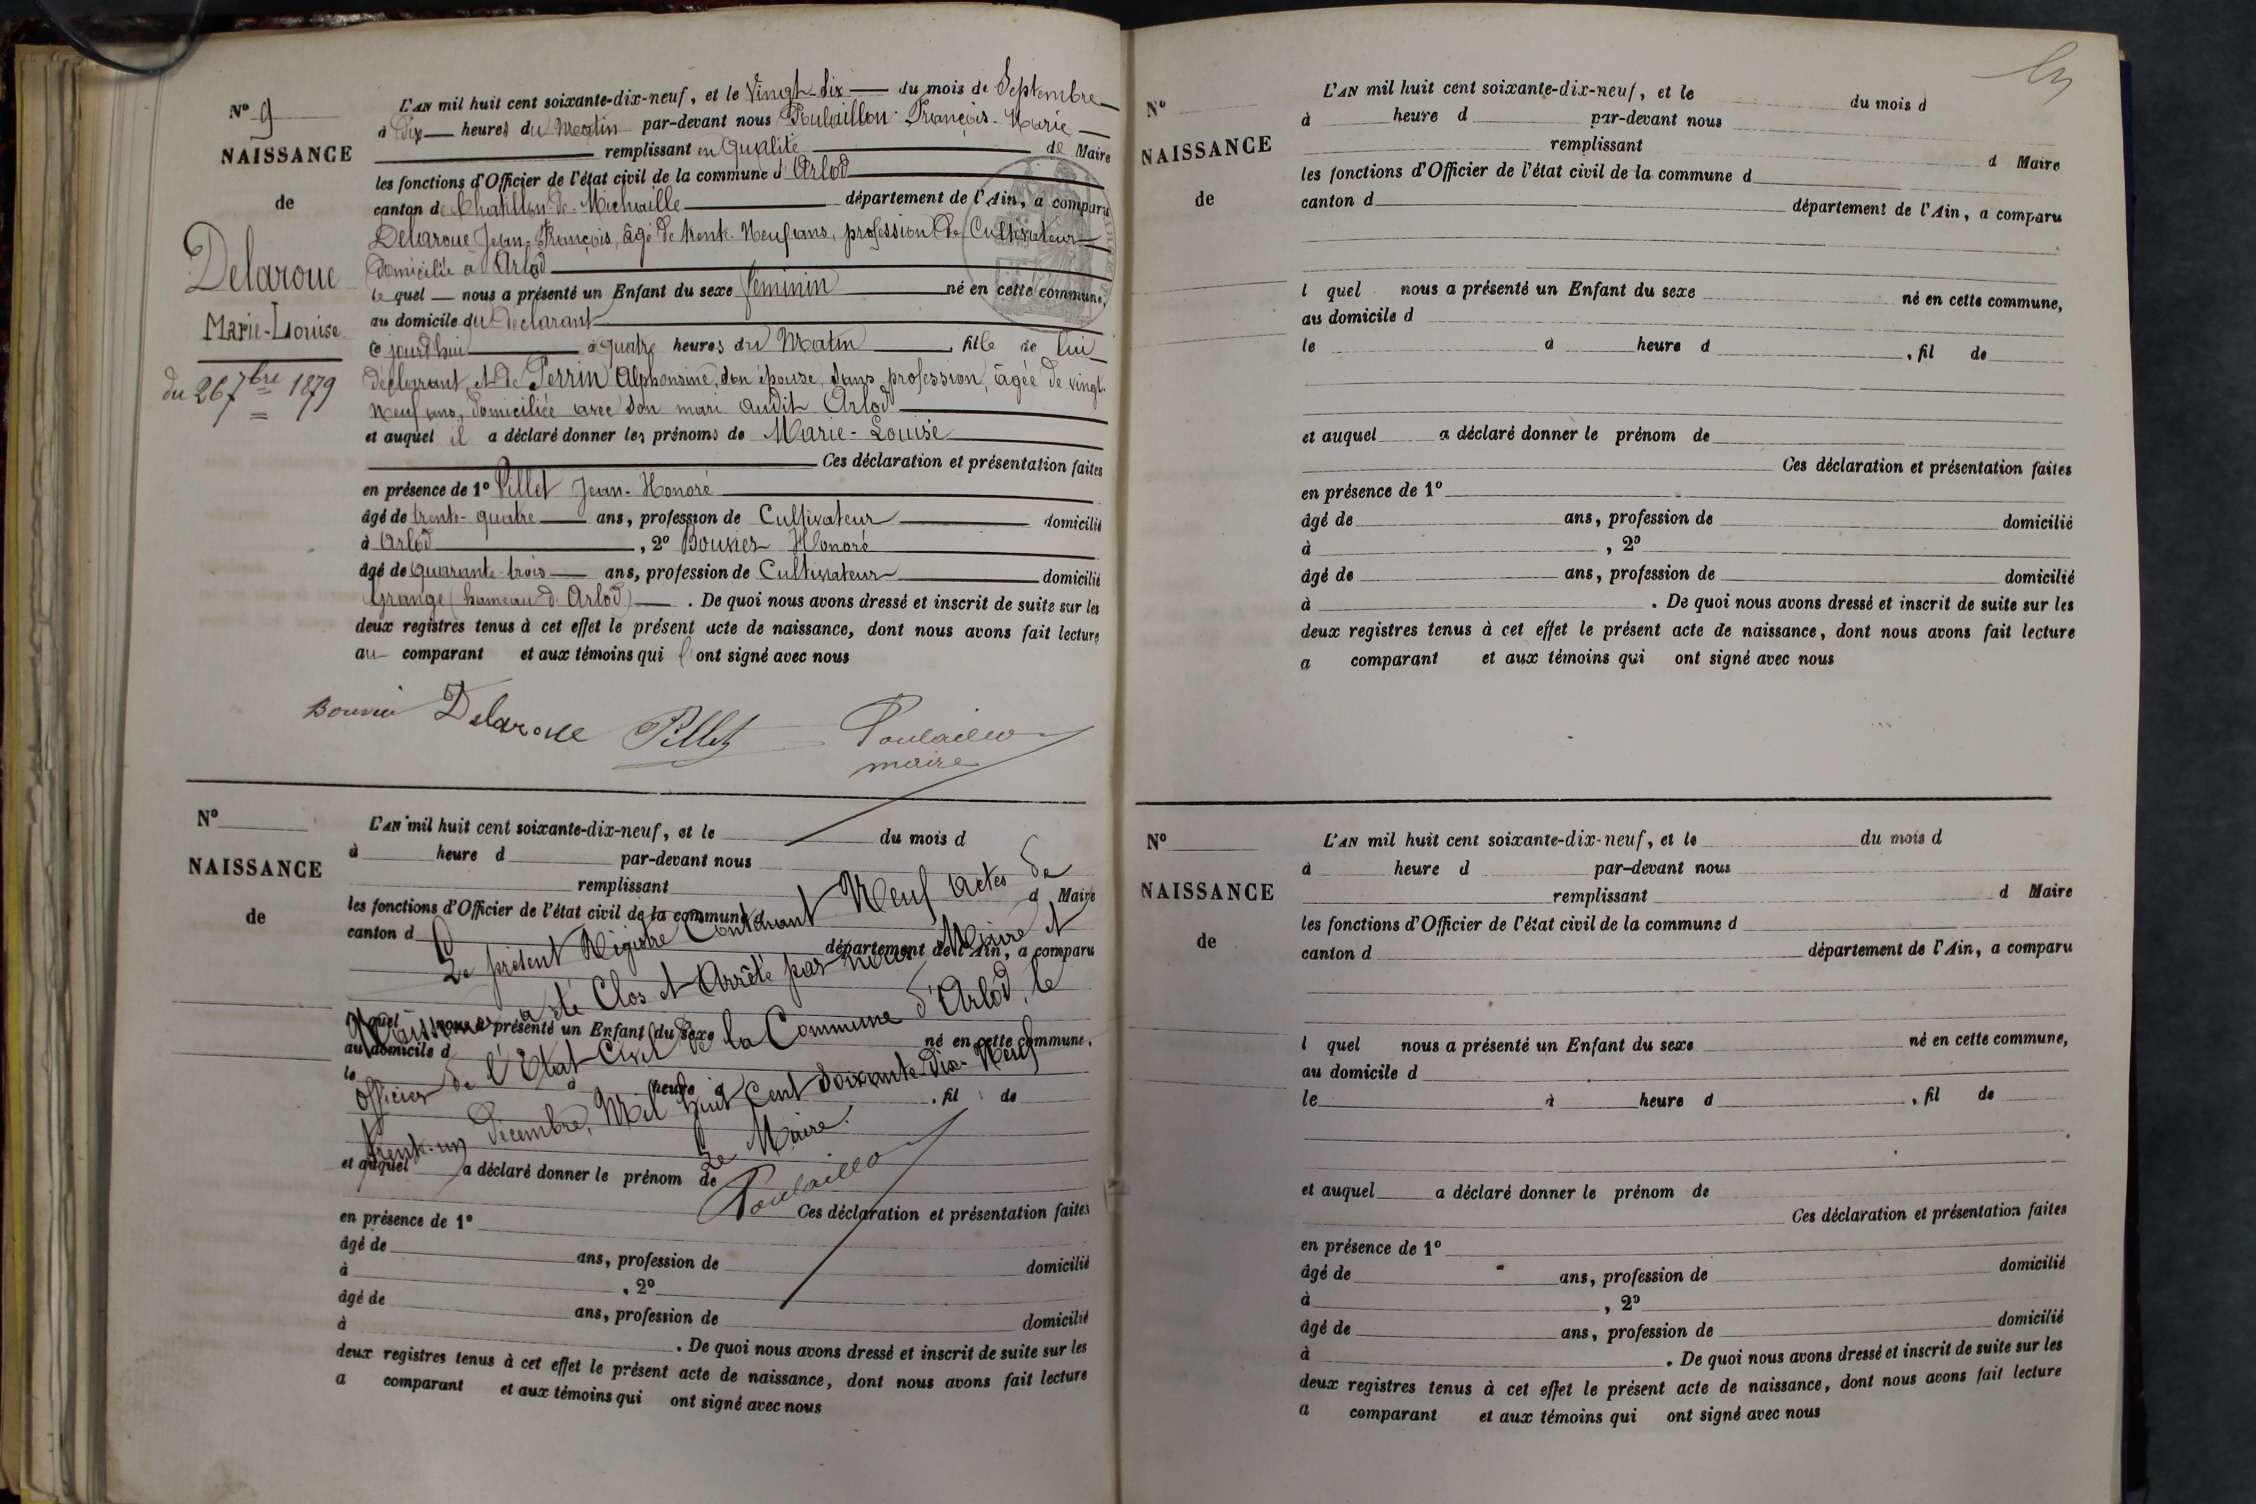 Nº 9
NAISSANCE
de
Delaroue
Marie-Louise
du 26 7bre 1879
L'AN mil huit cent soixante-dix-neuf, et le Vingt-Six du mois de Septembre
à Dix heures du Matin par-devant nous Poulaillon François-Marie
remplissant en Qualité de Maire
les fonctions d'Officier de l'état civil de la commune d'Arlod
canton de Chatillon-de-Michaille département de l'Ain, a comparu
Delaroue Jean-François, âgé de trente-Neuf ans, profession de Cultivateur
domicilié à Arlod
le quel nous a présenté un Enfant du sexe féminin né en cette commune,
au domicile du déclarant
ce jourd'hui à quatre heures du Matin, fille de lui
déclarant, et de Perrin Alphonsine, son épouse, sans profession, âgée de vingt-
neuf ans, domiciliée avec son mari audit Arlod
et auquel il a déclaré donner les prénoms de Marie-Louise
Ces déclaration et présentation faites
en présence de 1º Pillet Jean-Honoré
âgé de trente-quatre ans, profession de Cultivateur domicilié
à Arlod, 2º Bouvier Honoré
âgé de quarante-trois ans, profession de Cultivateur domicilié
Grange (hameau d'Arlod). De quoi nous avons dressé et inscrit de suite sur les
deux registres tenus à cet effet le présent acte de naissance, dont nous avons fait lecture
au comparant et aux témoins qui l'ont signé avec nous
Bouvier Delaroue Pillet Poulaillon
maire
Nº
NAISSANCE
de
L'AN mil huit cent soixante-dix-neuf, et le du mois d
à heure d par-devant nous
remplissant d Maire
les fonctions d'Officier de l'état civil de la commune d
canton d département de l'Ain, a comparu
l quel nous a présenté un Enfant du sexe né en cette commune,
au domicile d
le à heure d , fil de
et auquel a déclaré donner le prénom de
Ces déclaration et présentation faites
en présence de 1º
âgé de ans, profession de domicilié
à , 2º
âgé de ans, profession de domicilié
à . De quoi nous avons dressé et inscrit de suite sur les
deux registres tenus à cet effet le présent acte de naissance, dont nous avons fait lecture
a comparant et aux témoins qui ont signé avec nous
Le présent Registre Contenant Neuf actes de
Naissances a été Clos et Arrêté par nous Maire et
Officier de l'Etat-Civil de la Commune d'Arlod, le
trente-un Décembre, Mil huit Cent Soixante Dix-Neuf
Le Maire.
Poulaillon
Nº
NAISSANCE
de
L'AN mil huit cent soixante-dix-neuf, et le du mois d
à heure d par-devant nous
remplissant d Maire
les fonctions d'Officier de l'état civil de la commune d
canton d département de l'Ain, a comparu
l quel nous a présenté un Enfant du sexe né en cette commune,
au domicile d
le à heure d , fil de
et auquel a déclaré donner le prénom de
Ces déclaration et présentation faites
en présence de 1º
âgé de ans, profession de domicilié
à , 2º
âgé de ans, profession de domicilié
à . De quoi nous avons dressé et inscrit de suite sur les
deux registres tenus à cet effet le présent acte de naissance, dont nous avons fait lecture
a comparant et aux témoins qui ont signé avec nous
Nº
NAISSANCE
de
L'AN mil huit cent soixante-dix-neuf, et le du mois d
à heure d par-devant nous
remplissant d Maire
les fonctions d'Officier de l'état civil de la commune d
canton d département de l'Ain, a comparu
l quel nous a présenté un Enfant du sexe né en cette commune,
au domicile d
le à heure d , fil de
et auquel a déclaré donner le prénom de
Ces déclaration et présentation faites
en présence de 1º
âgé de ans, profession de domicilié
à , 2º
âgé de ans, profession de domicilié
à . De quoi nous avons dressé et inscrit de suite sur les
deux registres tenus à cet effet le présent acte de naissance, dont nous avons fait lecture
a comparant et aux témoins qui ont signé avec nous